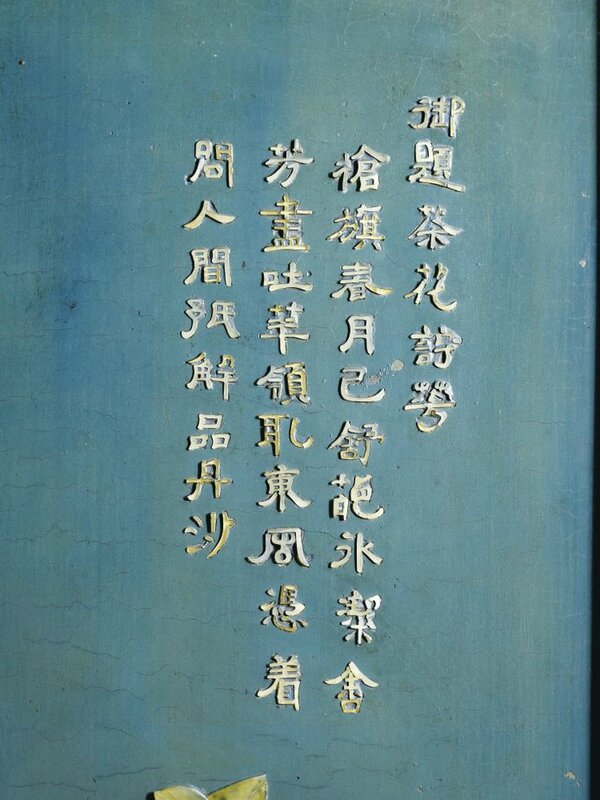 御題茶花詩
槍旗春月已舒葩氷潔舍
芳盡吐華領取東風憑着
問人間解品丹沙